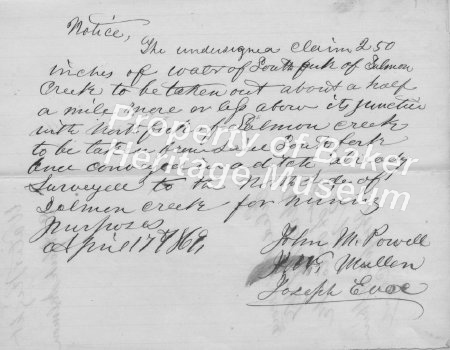 Notice,
The undersigned claim 250
inches of water of South fork of Salmon
Creek to be taken out about a half
a mile more or less above its junction
with North fork of Salmon creek
to be taken from said South fork
and conveyed in a ditch
Surveyed to the side of
Salmon creek for mining
purposes
April 17th 1869,
John M. Powell
Mullen
Joseph
Property of Baker
Heritage Museum